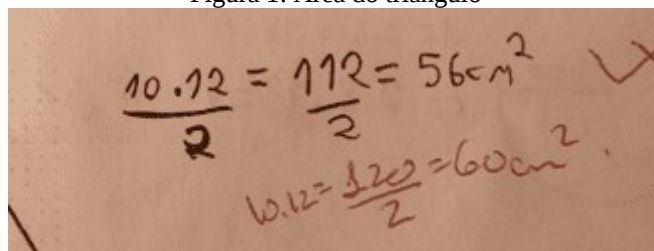 Figura 1: Área do triângulo
10.12/2 = 112/2 = 56cm²
10.12 = 120/2 = 60cm².